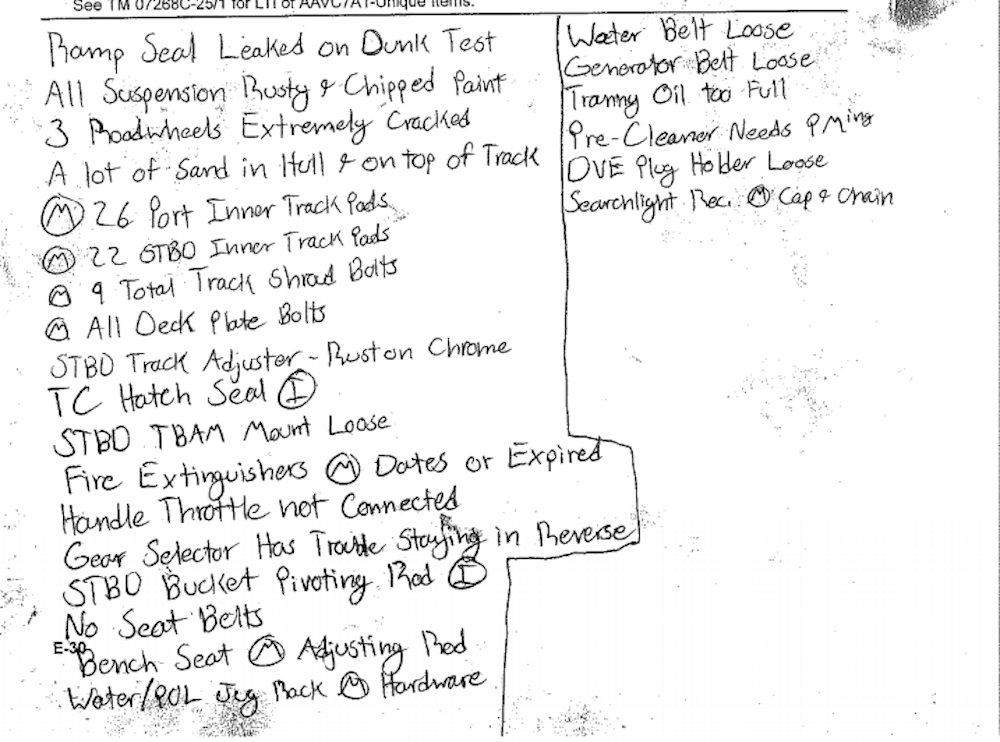 See TM 07268C-25/1 for LTI of AAVC7A1-Unique Items.
Ramp Seal Leaked on Dunk Test
All Suspension Rusty & Chipped Paint
3 Roadwheels Extremely Cracked
A lot of Sand in Hull & on top of Track
Ⓜ 26 Port Inner Track Pads
Ⓜ 22 STBD Inner Track Pads
Ⓜ 9 Total Track Shroud Bolts
Ⓜ All Deck Plate Bolts
STBD Track Adjuster - Rust on Chrome
TC Hatch Seal Ⓘ
STBD TBAM Mount Loose
Fire Extinguishers Ⓜ Dates or Expired
Handle Throttle not Connected
Gear Selector Has Trouble Staying in Reverse
STBD Bucket Pivoting Rod Ⓘ
No Seat Belts
E-30
Bench Seat Ⓜ Adjusting Rod
Water/POL Jug Rack Ⓜ Hardware
Water Belt Loose
Generator Belt Loose
Tranny Oil too Full
Pre-Cleaner Needs PMing
DVE Plug Holder Loose
Searchlight Rec. Ⓜ Cap & Chain